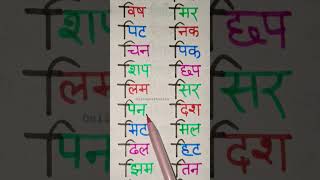 विष मिर
पिट निक
चिन पिक
शिप छिप
लिम सिर
पिन दिश
मिट मिल
ढिल हिट
झिम तिन